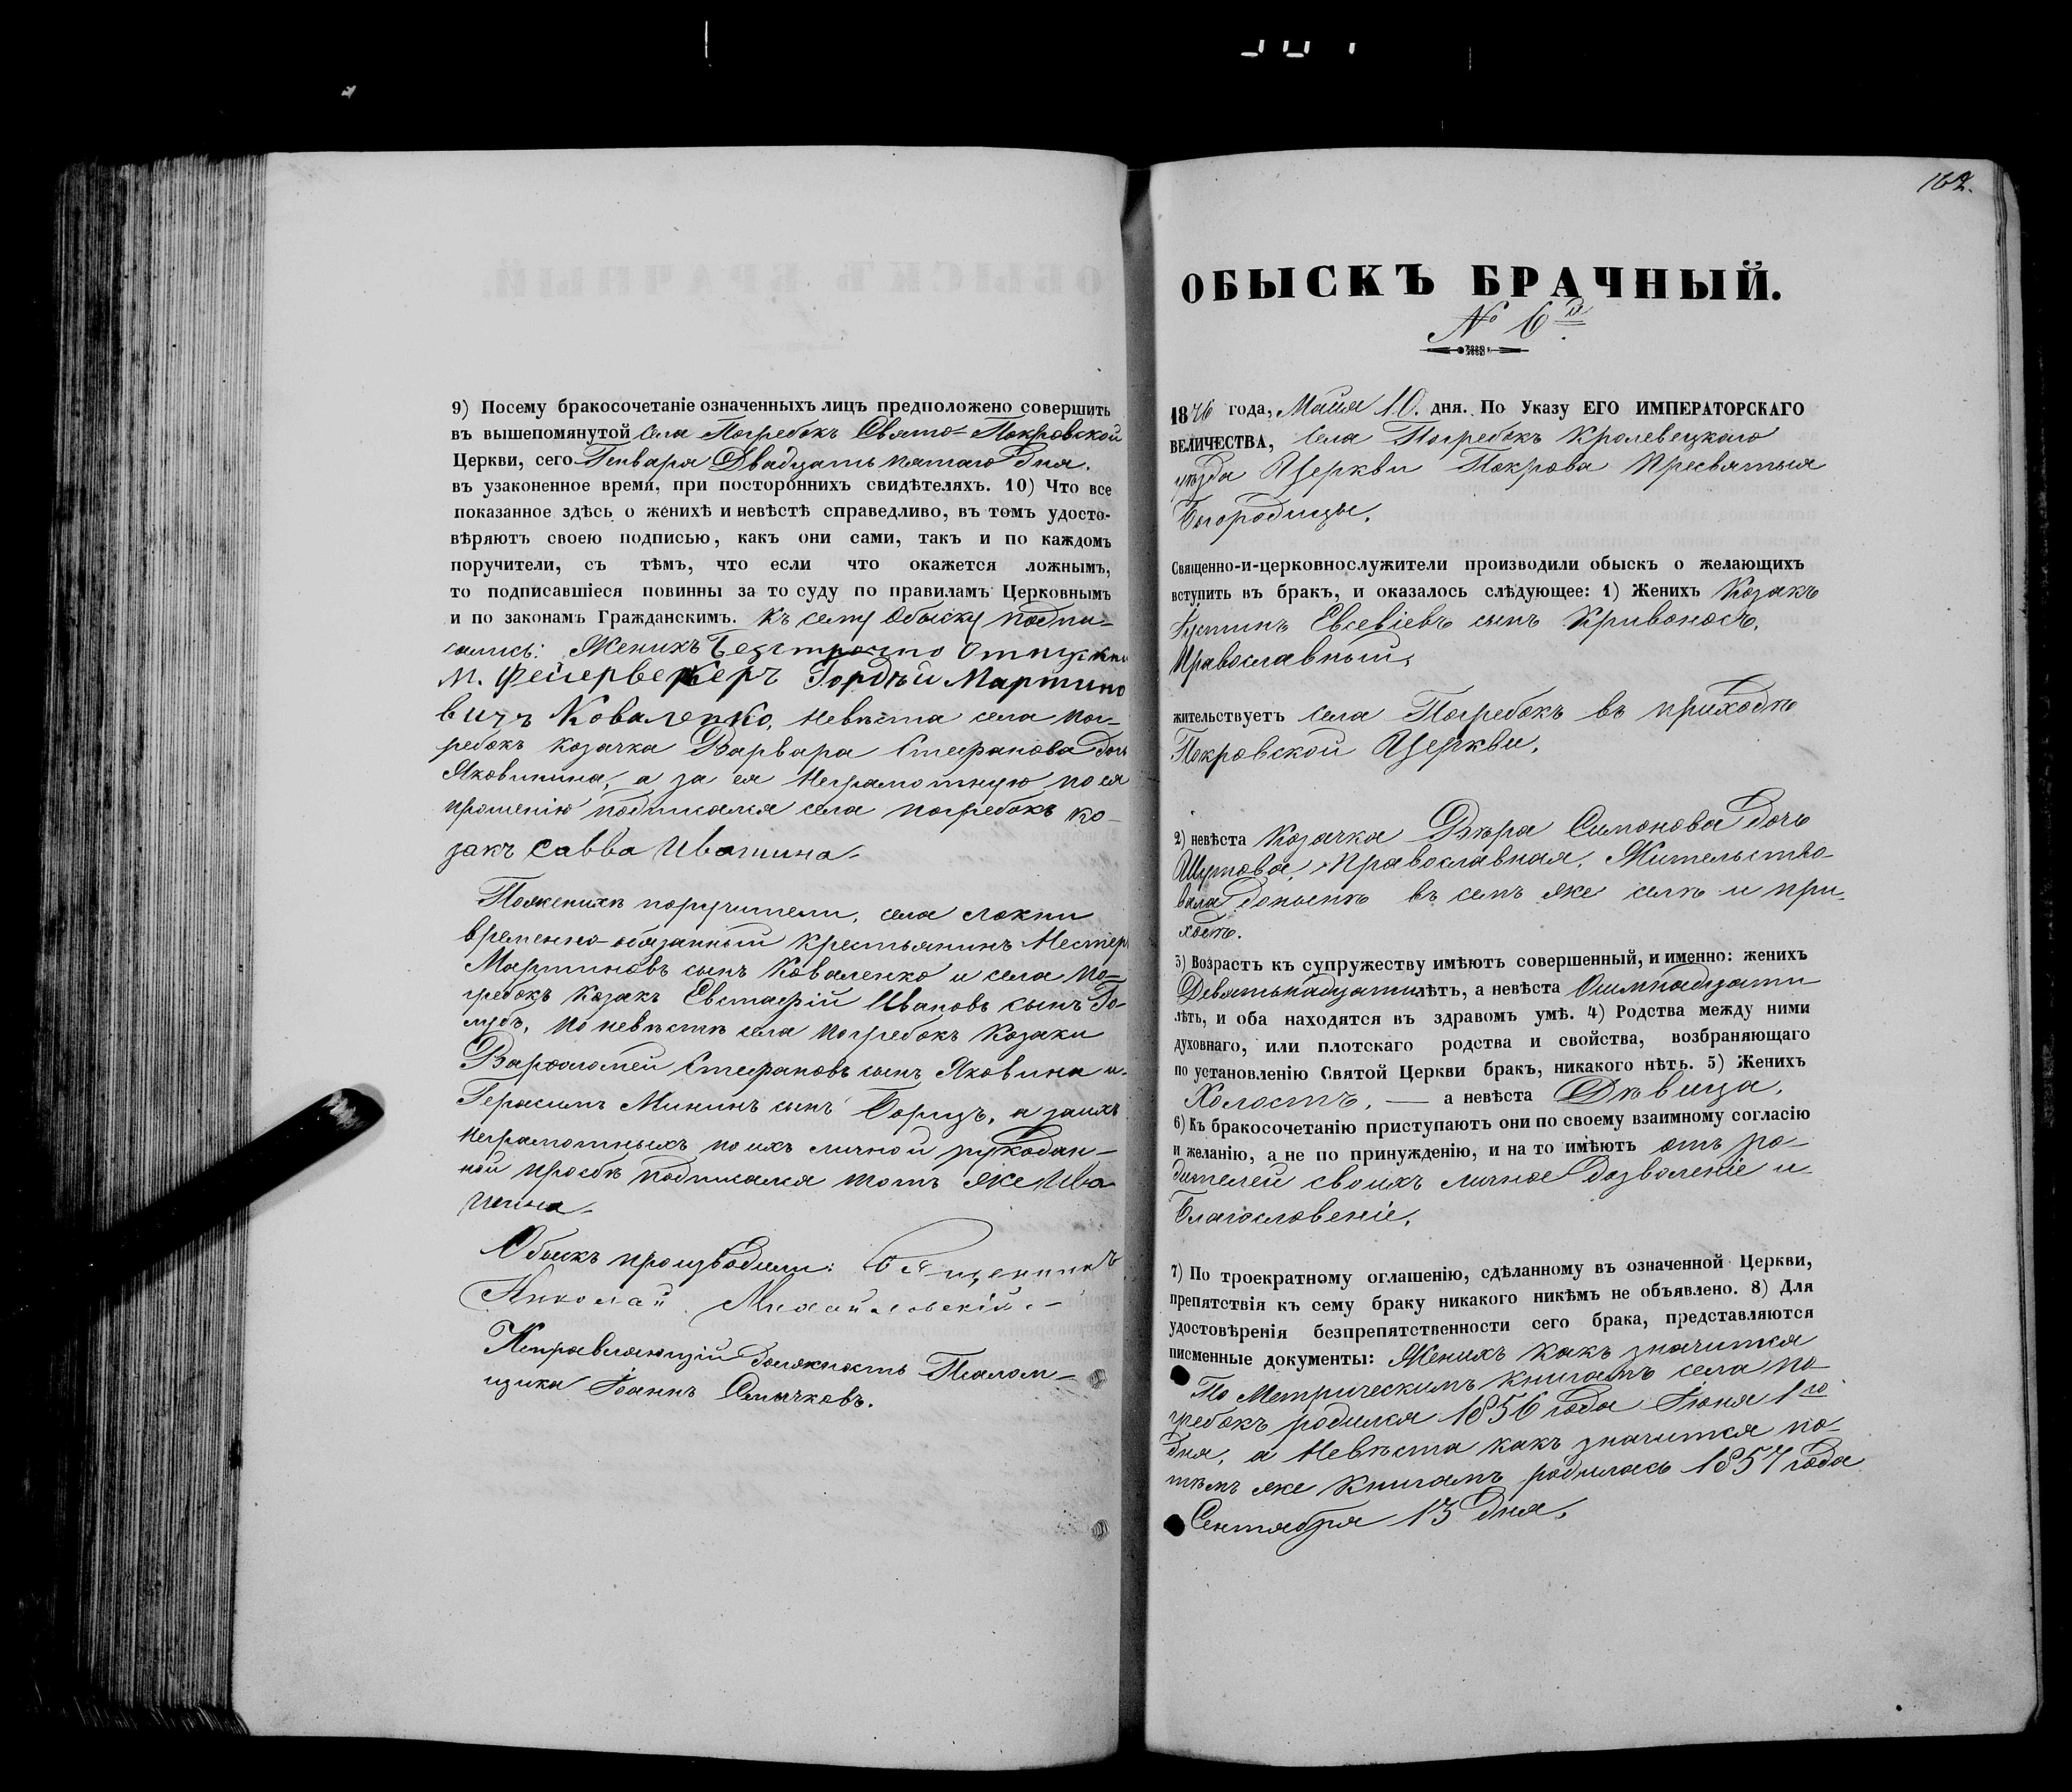 9) Посему бракосочетаніе означенныхъ лицъ предположено совершить
въ вышепомянутой села Погребокъ Свято-Покровской
Церкви, сего Генваря Двадцать пятаго дня.
въ узаконенное время, при постороннихъ свидѣтеляхъ. 10) Что все
показанное здѣсь о женихѣ и невѣстѣ справедливо, въ томъ удосто-
вѣряютъ своею подписью, какъ они сами, такъ и по каждомъ
поручители, съ тѣмъ, что если что окажется ложнымъ,
то подписавшіеся повинны за то суду по правиламъ Церковнымъ
и по законамъ Гражданскимъ. Къ сему Обыску подпи-
сались: Женихъ Безтрочно
м. Фейерверкеръ Гордѣй Мартино
вичъ Коваленко, Невѣста села Пог-
ребокъ козачка Варвара Стефанова дочь
Яковинина, а за ея Неграмотную по ея
прошенію подписался села погребокъ ко-
закъ Савва Ивашина.
Пожениху поручители, села Локни
временно-обязанный крестьянинъ Нестеръ
Мартиновъ сынъ Коваленко и села По-
гребокъ Козакъ Евстафій Ивановъ сынъ Го-
лубъ, по невѣстѣ села Погребокъ Козаки
Варфоломей Стефановъ сынъ Яковина и
Герасимъ Мининъ сынъ Борицъ, а заихъ
Неграмотныхъ по ихъ личной рукодан-
ной просбѣ подписался тотъ же Ива
шина.
Обыскъ производили: Священникъ
Николай Михайловскій.
Исправляющій должность Псалом-
щика Іоаннъ Смычковъ.
162.
ОБЫСКЪ БРАЧНЫЙ.
№ 6й
1876 года, Мaйя 10. дня. По Указу ЕГО ИМПЕРАТОРСКАГО
ВЕЛИЧЕСТВА, Села Погребокъ Кролевецкаго
уѣзда Церкви Покрова Пресвятыя
Богородицы.
Священно-и-церковнослужители производили обыскъ о желающихъ
вступить въ бракъ, и оказалось слѣдующее: 1) Женихъ Козакъ
Густинъ Евсевіевъ сынъ Кривоносъ.
Православный,
жительствуетъ села Погребокъ въ приходѣ
Покровской Церкви.
2) невѣста Козачка Вѣра Симонова дочь
Шутова, Православная, Жительство-
вала донынѣ въ семъ же селѣ и при-
ходѣ.
3) Возрастъ къ супружеству имѣютъ совершенный, и именно: женихъ
Девятьнадцати лѣтъ, а невѣста Осимнадцати
лѣтъ, и оба находятся въ здравомъ умѣ. 4) Родства между ними
духовнаго, или плотскаго родства и свойства, возбраняющаго
по установленію Святой Церкви бракъ, никакого нѣтъ. 5) Женихъ
Холостъ, — а невѣста Дѣвица,
6) Къ бракосочетанію приступаютъ они по своему взаимному согласію
и желанію, а не по принужденію, и на то имѣютъ отъ ро-
дителей своихъ личное Дозволеніе и
Благословеніе.
7) По троекратному оглашенію, сдѣланному въ означенной Церкви,
препятствія къ сему браку никакого никѣмъ не объявлено. 8) Для
удостовѣренія безпрепятственности сего брака, представляются
писменные документы: Женихъ Какъ значится
По Метрическимъ Книгамъ села По-
гребокъ родился 1856 года Іюня 1го
дня, а Невѣста какъ значится по-
тѣмъ же Книгамъ родилась 1857 года
Сентября 13 Дня.